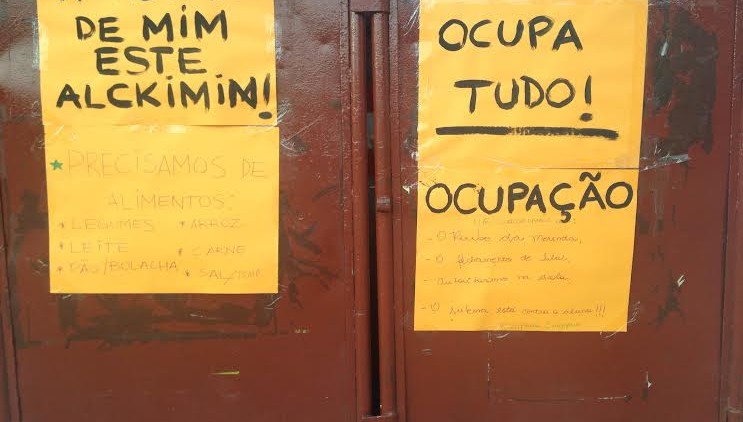 DE MIM
ESTE
ALCKIMIN!
★ PRECISAMOS DE
ALIMENTOS:
• LEGUMES • ARROZ
• LEITE • CARNE
• PÃO/BOLACHA • SAL/
OCUPA
TUDO!
OCUPAÇÃO
- O Roubo da merenda,
- O fechamento de salas,
- autoritarismo na
- O sistema está contra o !!!